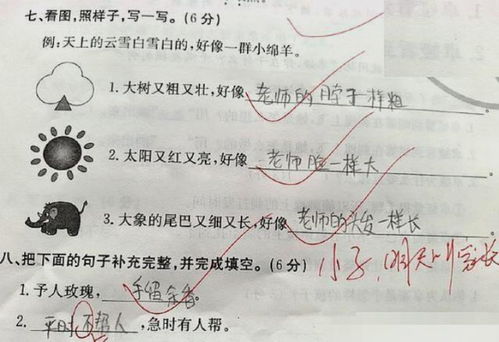 七、看图,照样子,写一写。(6分)
例:天上的云雪白雪白的,好像一群小绵羊。
1.大树又粗又壮,好像老师的脖子一样粗。
2.太阳又红又亮,好像老师脸一样大。
3.大象的尾巴又细又长,好像老师的头发一样长
小子,明天叫家长
八、把下面的句子补充完整,并完成填空。(6分)
1.予人玫瑰,手留余香。
2.平时不帮人,急时有人帮。